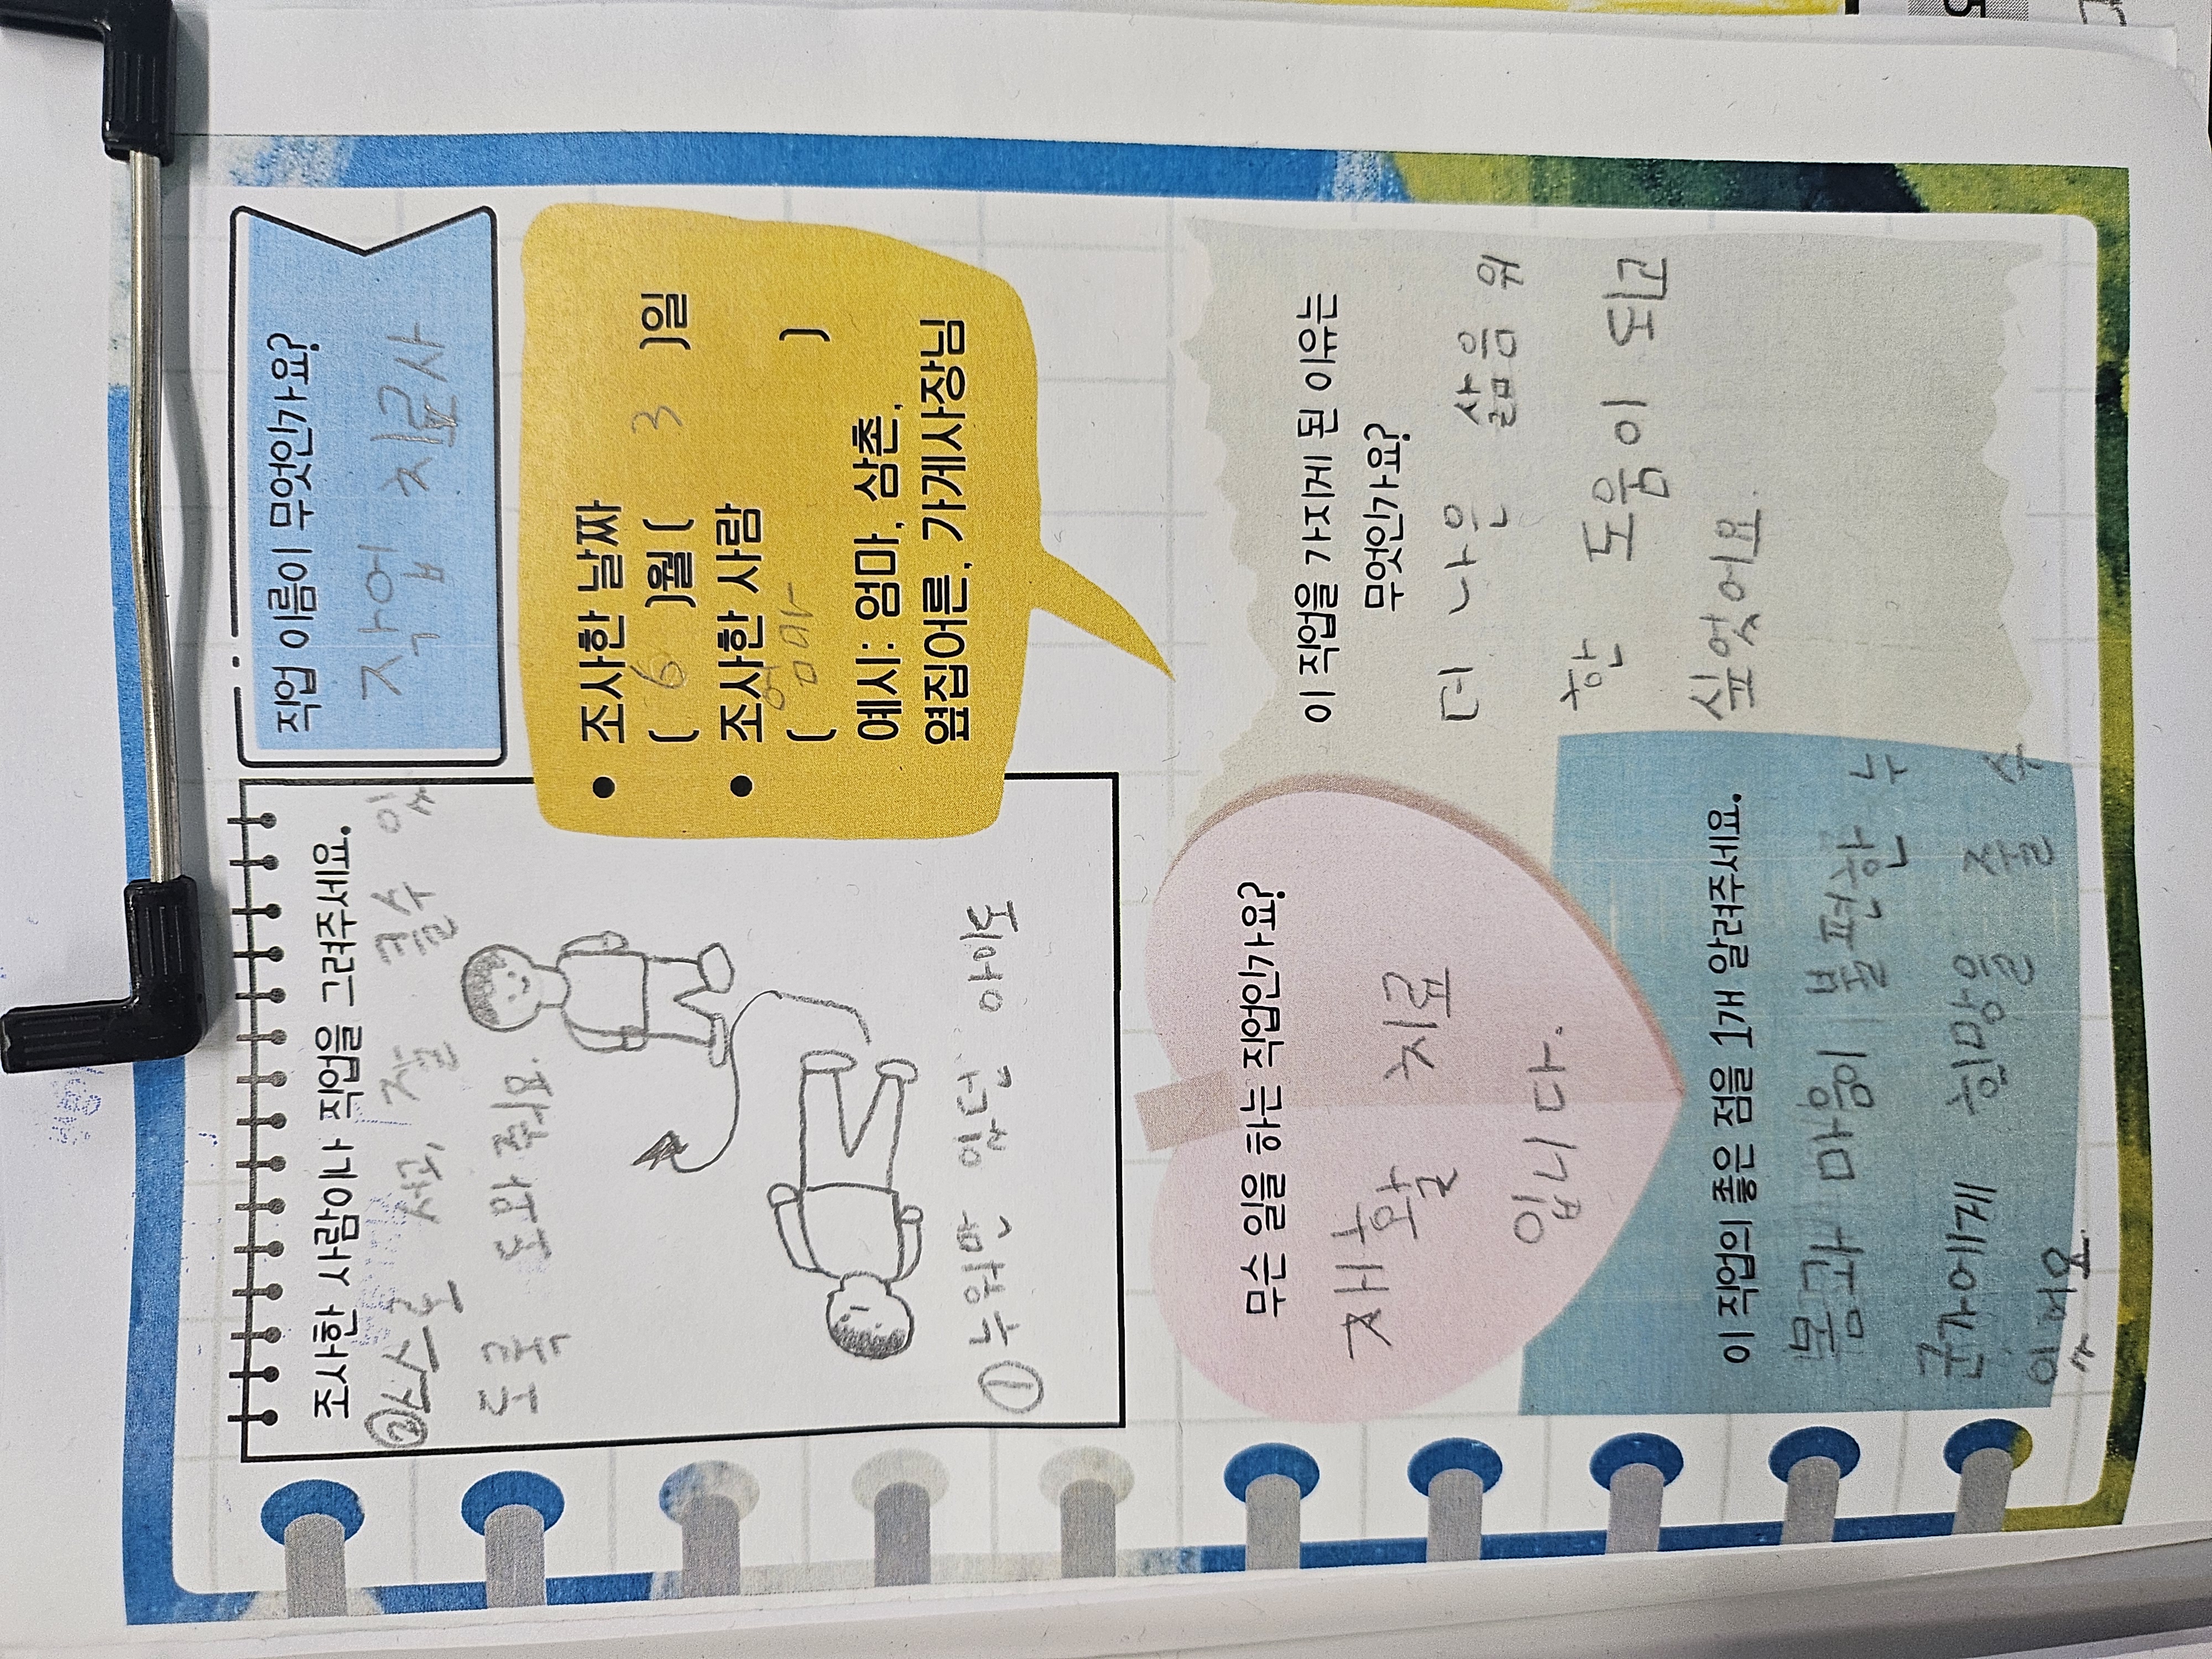 조사한 사람이나 직업을 그려주세요.
② 스스로 서고, 걸을 수 있
도록 도와줘요.
① 누워만 있던 아이도
직업 이름이 무엇인가요?
작업 치료사
• 조사한 날짜
( 6 )월 ( 3 )일
• 조사한 사람
( 엄마 )
예시: 엄마, 삼촌,
옆집어른, 가게사장님
무슨 일을 하는 직업인가요?
재활 치료
입니다.
이 직업을 가지게 된 이유는
무엇인가요?
더 나은 삶을 위
한 도움이 되고
싶었어요.
이 직업의 좋은 점을 1개 알려주세요.
몸과 마음이 불편한 누
군가에게 희망을 줄 수
있어요.